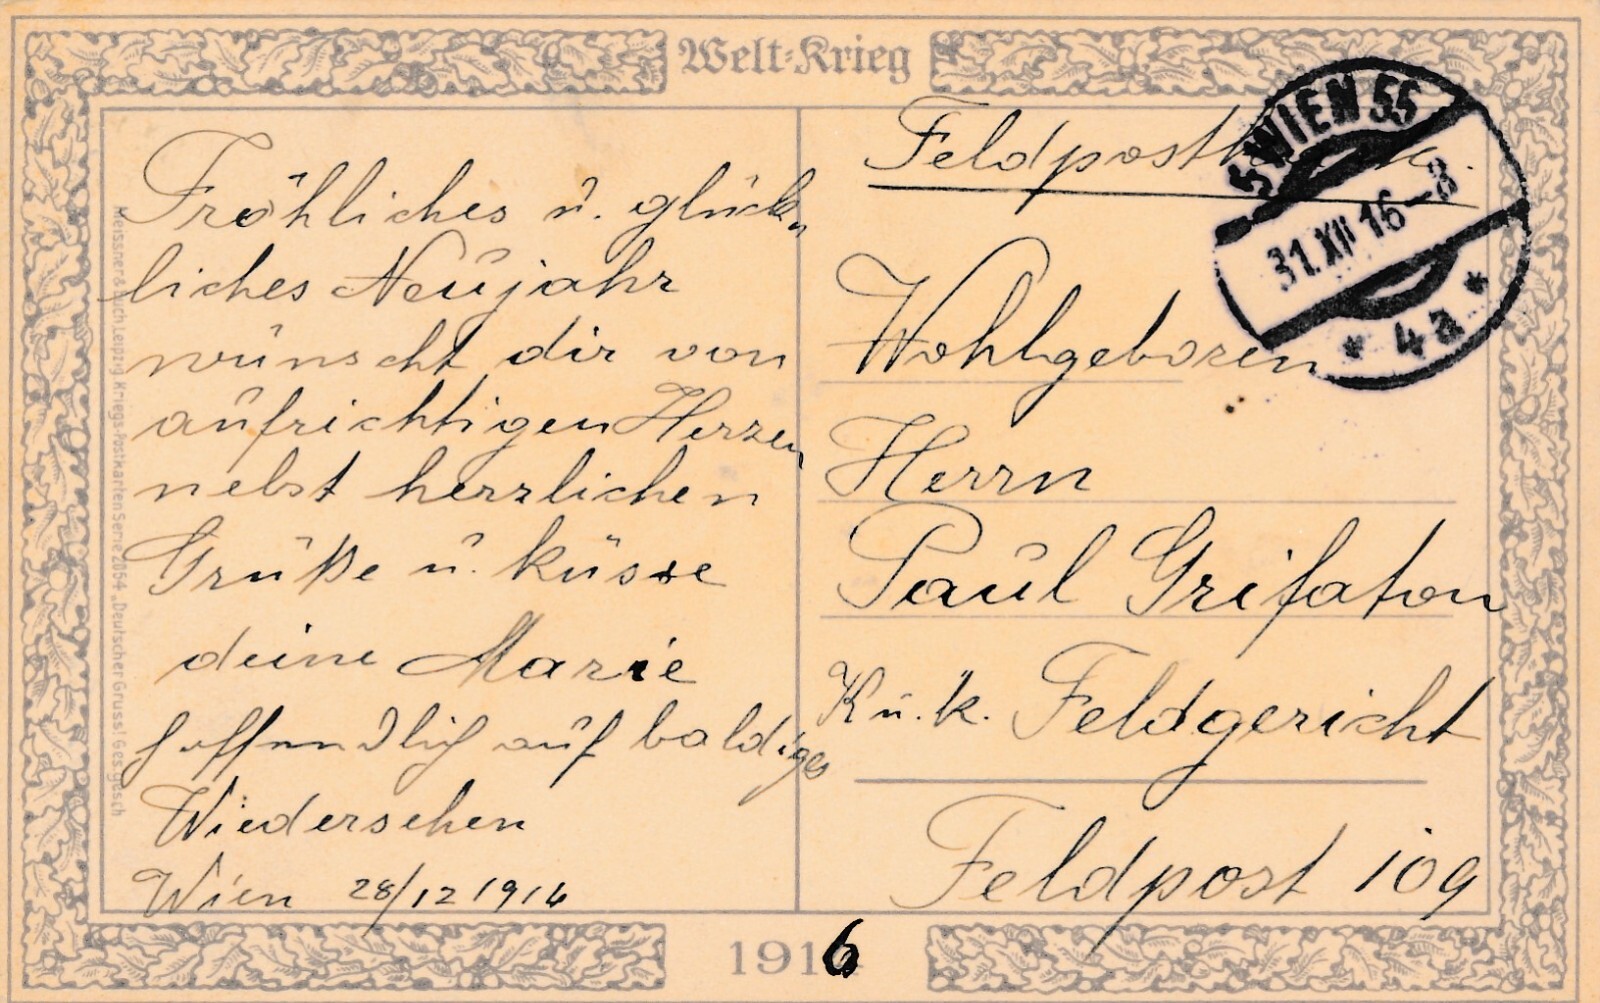 Welt-Krieg
Fröhliches u. glück
liches Neujahr
wünscht dir von
aufrichtigen Herzen
nebst herzlichen
Grüße u. küsse
deine Marie
hoffendlich auf baldiges
Wiedersehen
Wien 28/12 1916
Meissner & Buch Leipzig Kriegs-Postkarten Serie 2054 „Deutscher Gruss! Ges. gesch
5 WIEN 55
31.XII 16-8
* 4a *
Wohlgeboren
Herrn
Paul Grifaton
K u. k. Feldgericht
Feldpost 109
1916